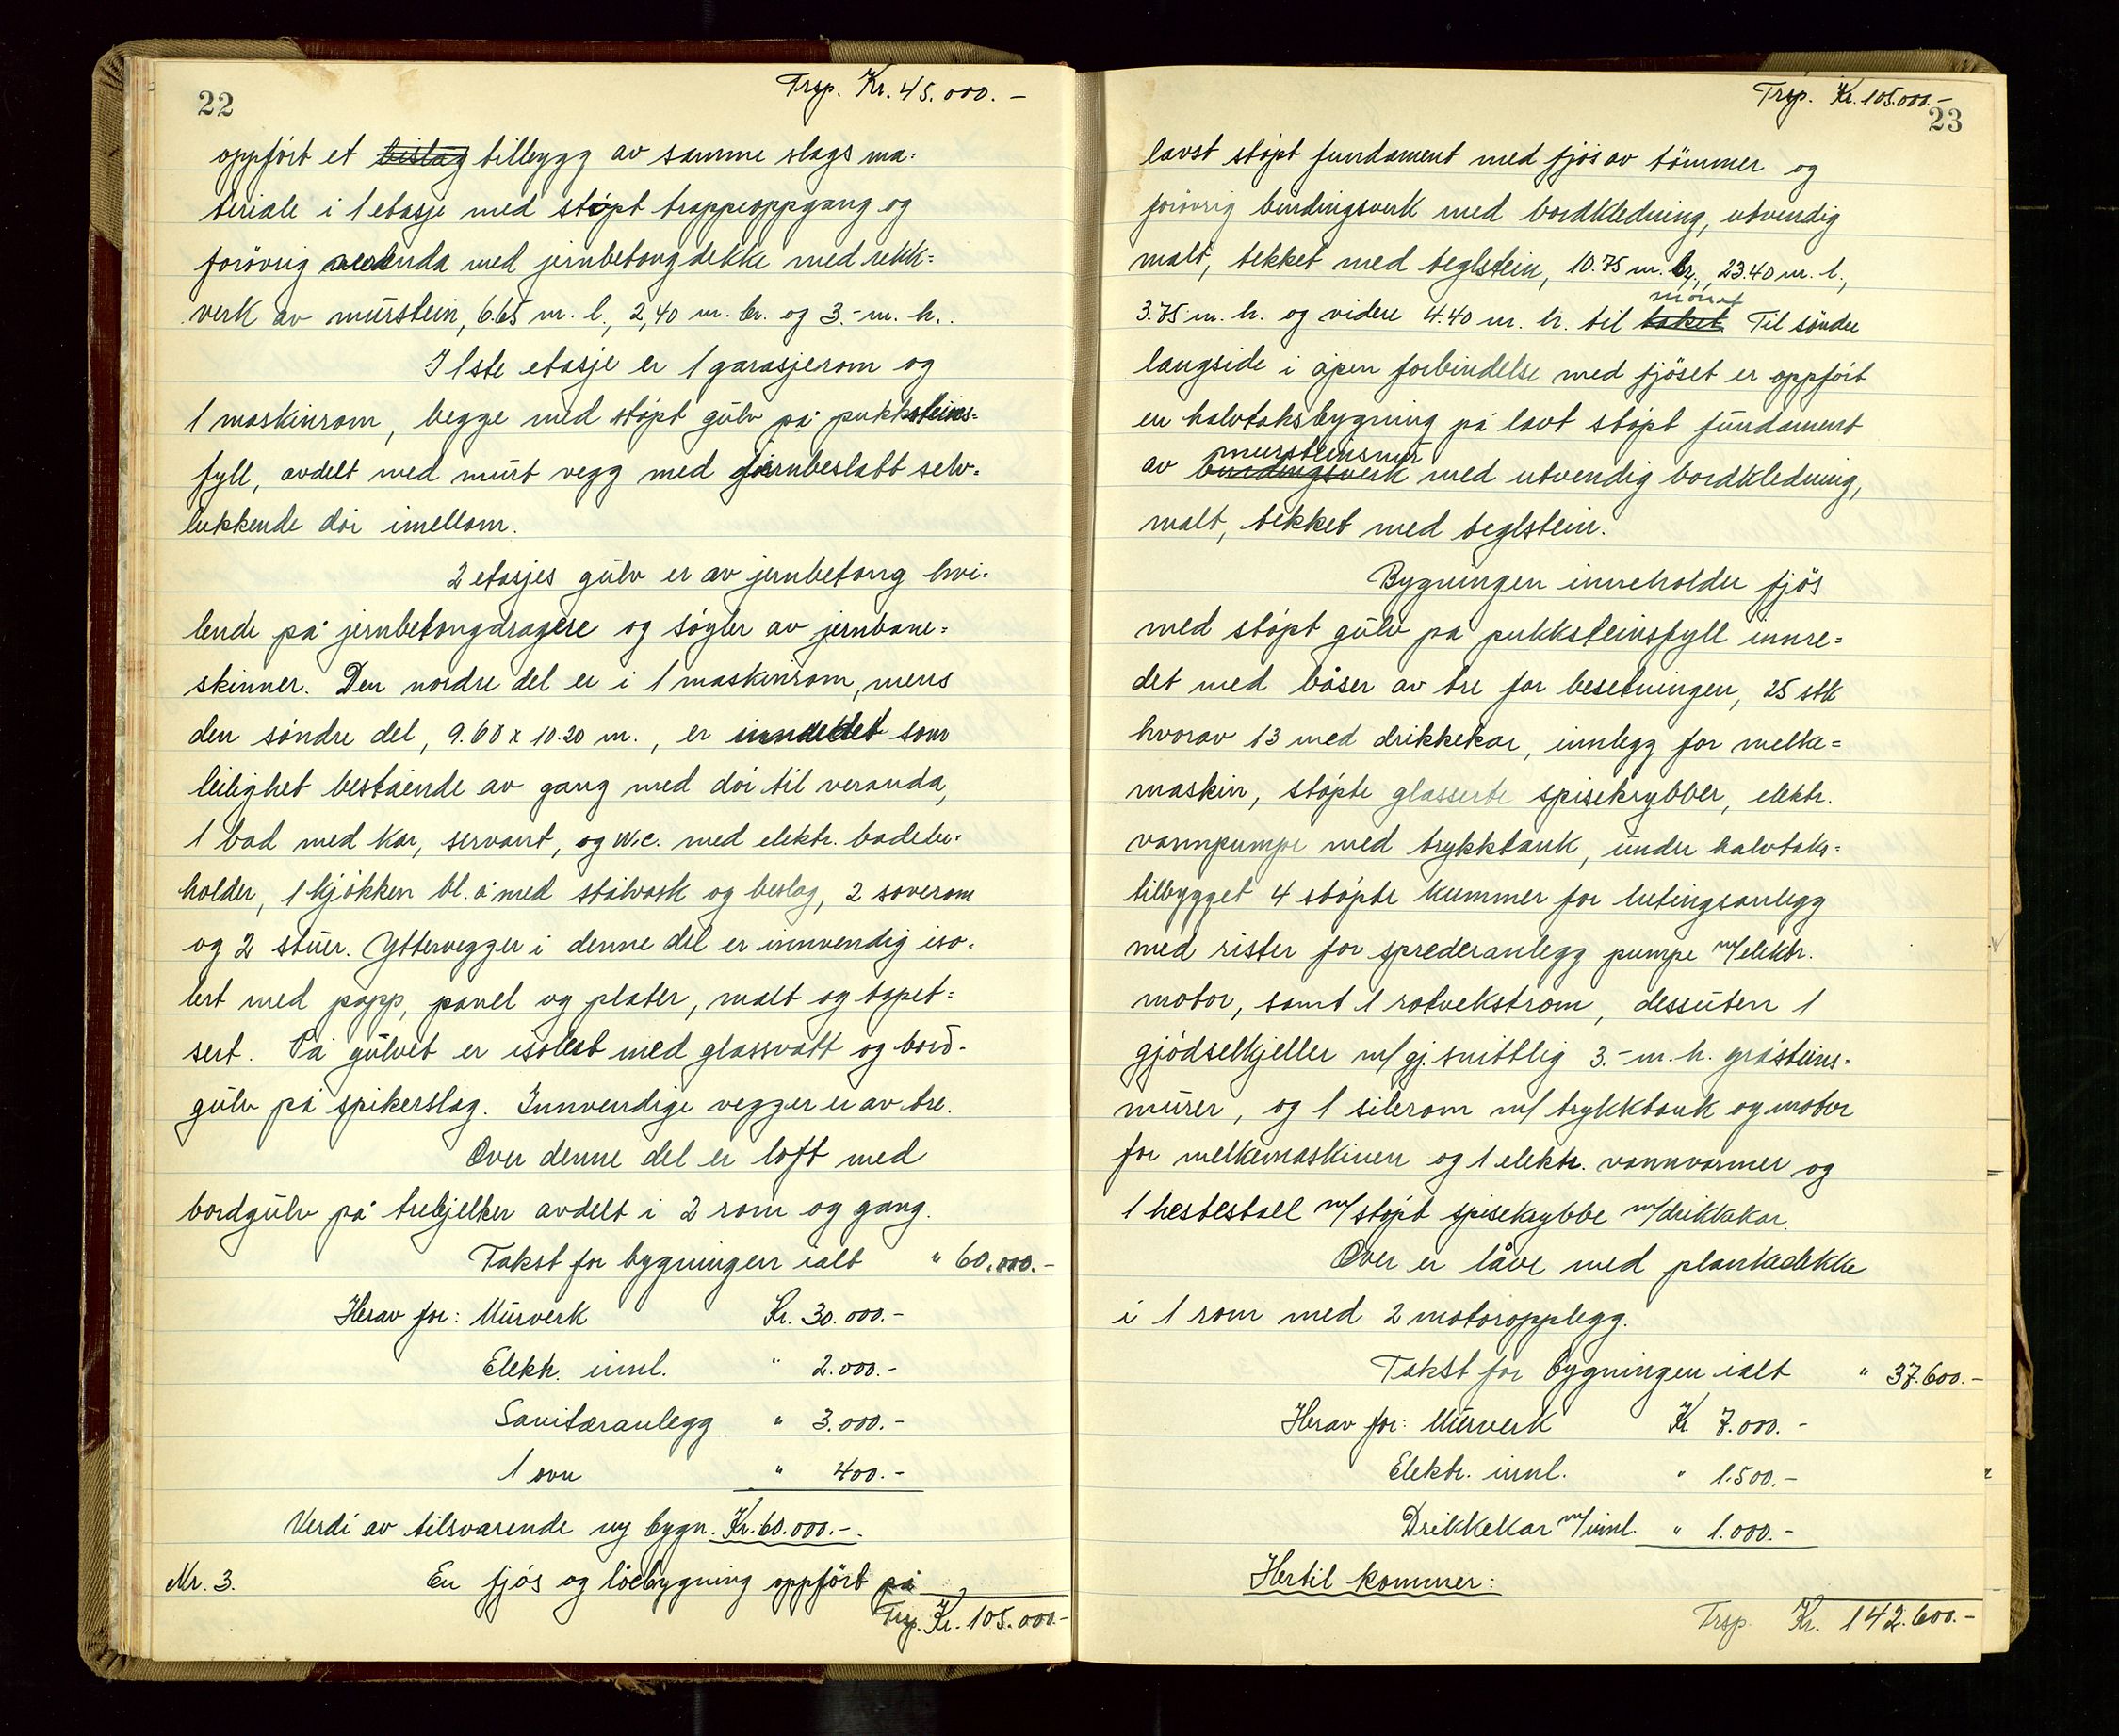 22
Trsp. Kr. 45.000.-
oppført et bislag tilbygg av samme slags ma=
teriale i 1 etasje med støpt trappeoppgang og
forøvrig veranda med jernbetongdekke med rekk=
verk av murstein, 6.65 m. l., 2,40 m. br. og 3.- m. h..
I 1ste etasje er 1 garasjerom og
1 maskinrom, begge med støpt gulv på pukksteins=
fyll, avdelt med murt vegg med jernbeslått selv=
lukkende dør imellom.
2 etasjes gulv er av jernbetong hvi-
lende på jernbetongdragere og søyler av jernbane=
skinner. Den nordre del er i 1 maskinrom, mens
den søndre del, 9.60 x 10.20 m., er innredet som
leilighet bestående av gang med dør til veranda,
1 bad med kar, servant, og W.c. med elektr. badebe-
holder, 1 kjøkken bl. a. med stålvask og beslag, 2 soverom
og 2 stuer. Yttervegger i denne del er innvendig iso-
lert med papp, panel og plater, malt og tapet=
sert. På gulvet er isolert med glassvatt og bord-
gulv på spikerslag. Innvendige vegger er av tre.
Over denne del er loft med
bordgulv på trebjelker avdelt i 2 rom og gang.
Takst for bygningen ialt " 60.000.-
Herav for: Murverk Kr. 30.000.-
Elektr. innl. " 2.000.-
Sanitæranlegg " 3.000.-
1 ovn " 400.-
Verdi av tilsvarende ny bygn. Kr. 60.000.-.
Nr. 3. En fjøs og løebygning oppført på
Trsp. Kr. 105.000.-
Trsp. Kr. 105.000.-
23
lavst støpt fundament med fjøs av tømmer og
forøvrig bindingsverk med bordkledning, utvendig
malt, tekket med teglstein, 10.75 m. br., 23.40 m. l.,
3.75 m. h. og videre 4.40 m. h. til taket mønet Til søndre
langside i åpen forbindelse med fjøset er oppført
en halvtaksbygning på lavt støpt fundament
av bindingsverk mursteinsmur med utvendig bordkledning,
malt, tekket med teglstein.
Bygningen inneholder fjøs
med støpt gulv på pukksteinsfyll innre=
det med båser av tre for besetningen, 25 stk
hvorav 13 med drikkekar, innlegg for melke=
maskin, støpte glasserte spisekrybber, elektr.
vannpumpe med trykktank, under halvtaks=
tilbygget 4 støpte kummer for lutingsanlegg
med rister for sprederanlegg pumpe m/elektr.
motor, samt 1 rotvekstrom, dessuten 1
gjødselkjeller m/ gj. snittlig 3.- m. h. gråsteins-
murer, og 1 silerom m/ trykktank og motor
for melkemaskinen og 1 elektr. vannvarmer og
1 hestestall m/støpt spisekrybbe m/drikkekar.
Over er låve med plankedekke
i 1 rom med 2 motoropplegg.
Takst for bygningen ialt " 37.600.-
Herav for: Murverk Kr. 7.000.-
Elektr. innl. " 1.500.-
Drikkekar m/innl. " 1.000.-
Hertil kommer:
Trsp. Kr. 142.600.-